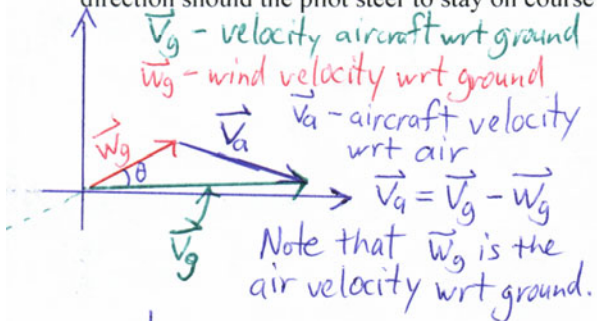 direction should the pilot steer to stay on course
V⃗g - velocity aircraft wrt ground
W⃗g - wind velocity wrt ground
V⃗a - aircraft velocity
wrt air
W⃗g
θ
V⃗a
V⃗a = V⃗g - W⃗g
V⃗g
Note that W⃗g is the
air velocity wrt ground.